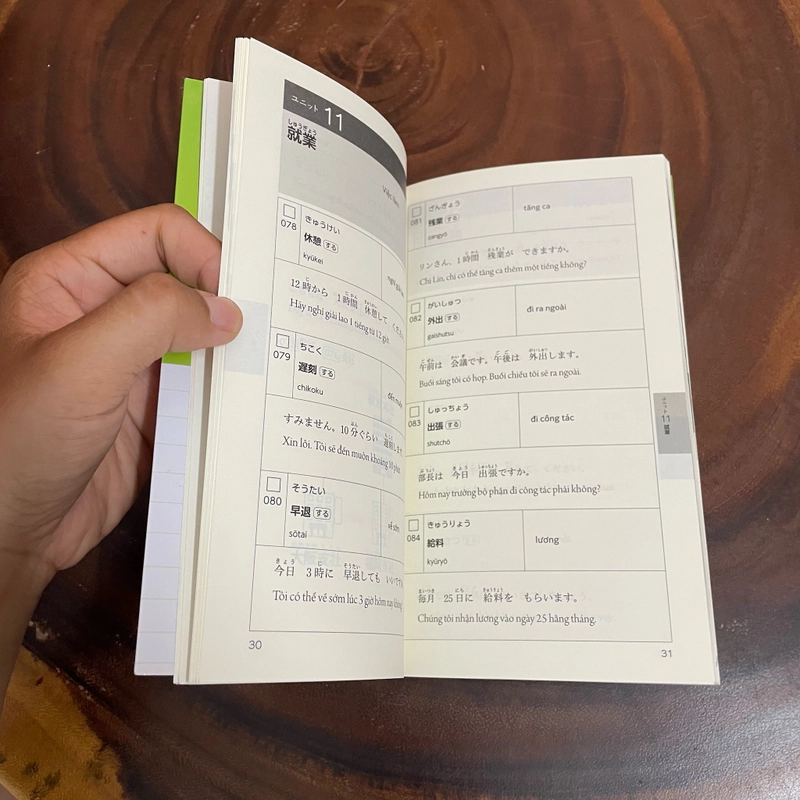 ユニット 11
しゅうぎょう
就業
Việc làm
078
きゅうけい
休憩 する
kyūkei
12時から 1時間 休憩して
Hãy nghỉ giải lao 1 tiếng từ 12 giờ
079
ちこく
遅刻 する
chikoku
đến muộn
すみません。10分ぐらい 遅刻します
Xin lỗi. Tôi sẽ đến muộn khoảng 10 phút
080
そうたい
早退 する
sōtai
về sớm
今日 3時に 早退しても いいです
Tôi có thể về sớm lúc 3 giờ hôm nay không
30
081
ざんぎょう
残業 する
zangyō
tăng ca
リンさん、1時間 残業が できますか。
Chị Lin, chị có thể tăng ca thêm một tiếng không?
082
がいしゅつ
外出 する
gaishutsu
đi ra ngoài
午前は 会議です。午後は 外出します。
Buổi sáng tôi có họp. Buổi chiều tôi sẽ ra ngoài.
083
しゅっちょう
出張 する
shutchō
đi công tác
部長は 今日 出張ですか。
Hôm nay trưởng bộ phận đi công tác phải không?
084
きゅうりょう
給料
kyūryō
lương
毎月 25日に 給料を もらいます。
Chúng tôi nhận lương vào ngày 25 hằng tháng.
ユニット 11 就業
31